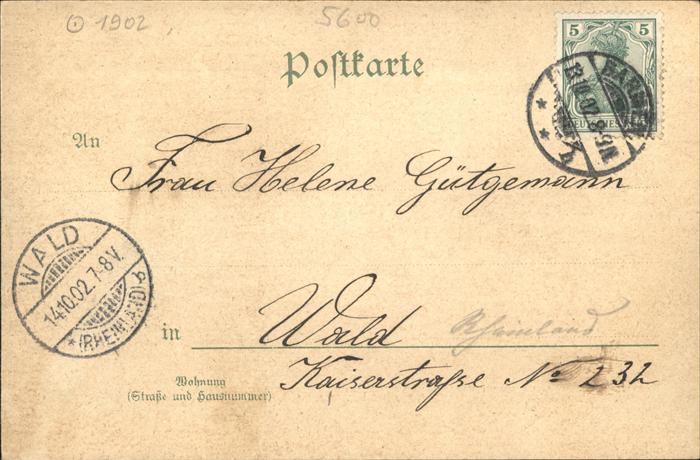 1902
5600
Postkarte
5 5
DEUTSCHES REICH
BARMEN
13.10.02. 8-9N.
An
Frau Helene Gütgemann
WALD
14.10.02.7-8V.
* (RHEINLAND)
in Wald Rheinland
Kaiserstraße No 232
Wohnung
(Straße und Hausnummer)